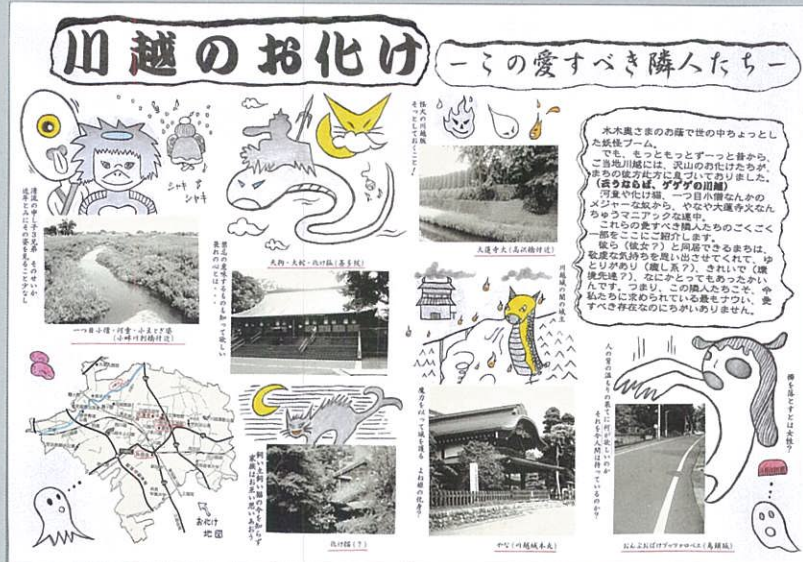 川越のお化け
ーこの愛すべき隣人たちー
木木奥さまのお蔭で世の中ちょっとし
た妖怪ブーム。
でも、もっともっとずーっと昔から、
ご当地川越には、沢山のお化けたちが、
まちの彼方此方に息づいておりました。
(云うならば、ゲゲゲの川越)
河童や化け猫、一つ目小僧なんかの
メジャーな奴から、やなや大蓮寺火なん
ちゅうマニアックな連中。
これらの愛すべき隣人たちのごくごく
一部をここにご紹介します。
彼ら(彼女?)と同居できるまちは、
敬虔な気持ちを思い出させてくれて、ゆ
とりがあり(癒し系?)、きれいで(環
境先進?)、なにかとってもあったかい
んです。つまり、この隣人たちこそ、今
私たちに求められている最もナウい、愛
すべき存在なのにちがいありません。
シャキ
シャキ
清流の申し子3兄弟 そのせいか
近年とみにその姿を見ること少なし
一つ目小僧・河童・小豆とぎ婆
(小畔川利橋付近)
天狗・大蛇・化け猫(喜多院)
禁忌の意味するものも知って欲しい
畏れの心とは・・・
怪火の川越版
そっとしておくこと!
大蓮寺火(高沢橋付近)
川越城の闇の城主
魔力を以って城を護る よね姫の化身?
やな(川越城本丸)
飼い主飼い猫の今を知らず
家族はお互い思いあおう
化け猫(?)
人の背の温もりの果てに何が欲しいのか
それを今人間は持っているのか?
櫛を落とすとは女性?
おんぶおばけブッツァロベエ(烏頭坂)
お化け
地図